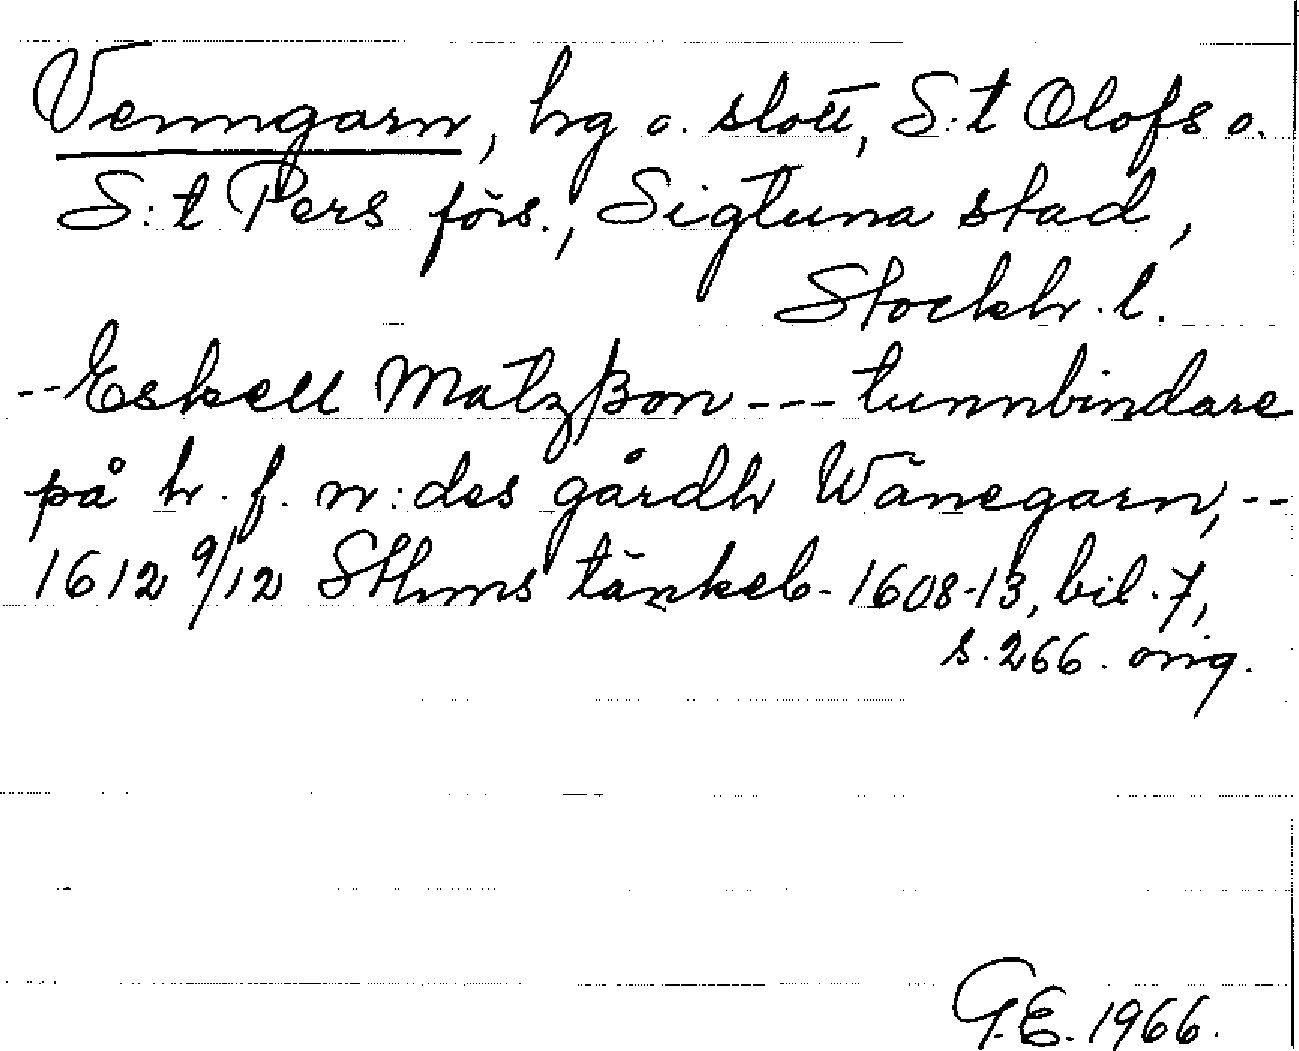 Venngarn, hg o. slott, S:t Olofs o.
S:t Pers förs., Sigtuna stad,
Stockh. l.
--Eskell Matzßon --- tunnbindare
på h. f. n:des gårdh Wänegarn, --
1612 9/12 Sthms tänkeb. 1608-13, bil. 7,
s. 266. orig.
G.E. 1966.